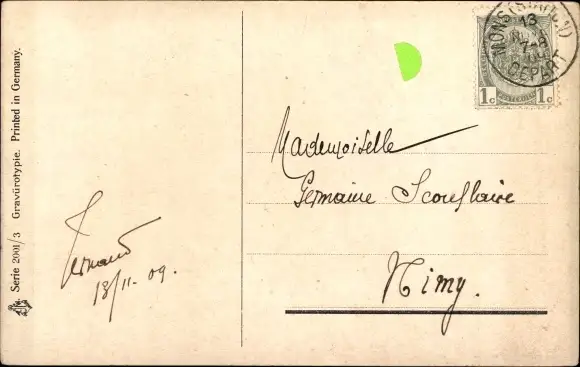 Serie 2001/3 Gravürotypie. Printed in Germany.
MONS (STATION)
13
7-8
DEPART
1c 1c
Mademoiselle
Germaine Scouflaire
Nimy.
Fernand
18/11.09.